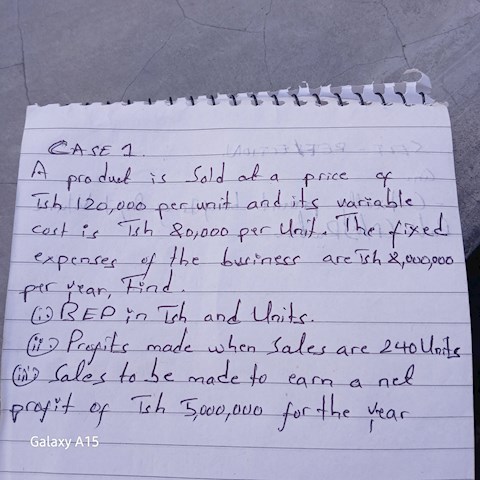 CASE 1.
A product is sold at a price of
Tsh 120,000 per unit and its variable
cost is Tsh 80,000 per Unit. The fixed
expenses of the business are Tsh 8,000,000
per year, Find.
(i) BEP in Tsh and Units.
(ii) Profits made when Sales are 240 Units
(iii) Sales to be made to earn a net
profit of Tsh 5,000,000 for the year
Galaxy A15